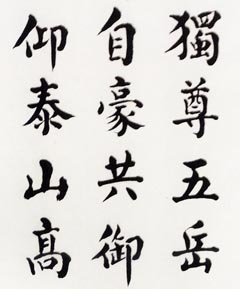 獨尊五岳
自豪共御
仰泰山高